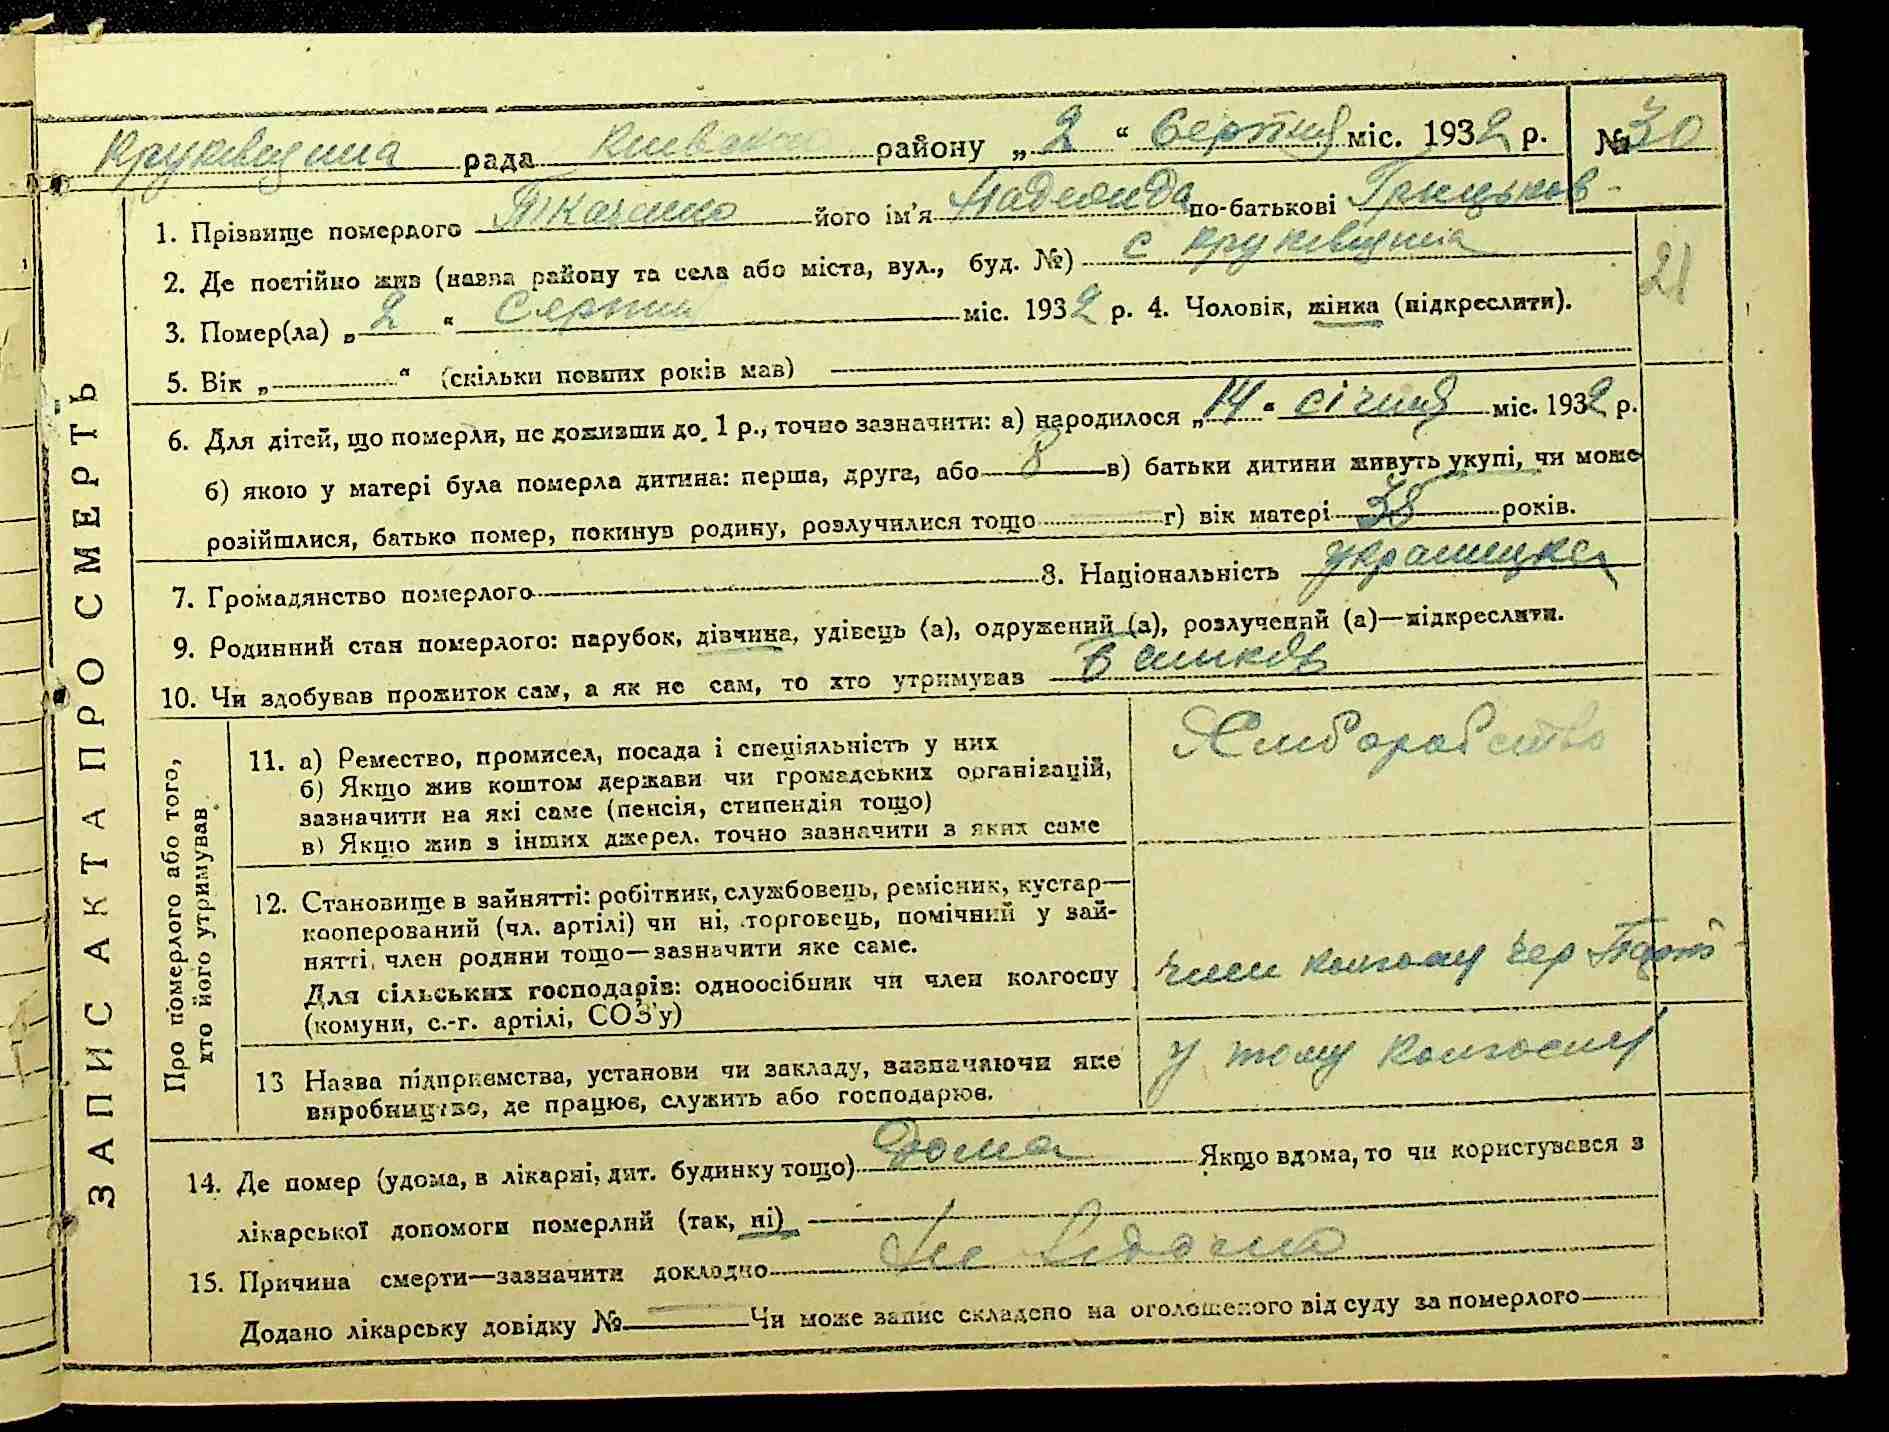 Круківщина рада Киевского району „ 2 “ Серпня міс. 1932 р. № 30
1. Прізвище померлого Ткаченко його ім’я Надежда по-батькові Грицьков-
2. Де постійно жив (назва району та села або міста, вул., буд. №) с Круківщина
21
3. Помер(ла) „ 2 “ Серпня міс. 1932 р. 4. Чоловік, жінка (підкреслити).
5. Вік „ “ (скільки повних років мав)
6. Для дітей, що померли, не доживши до 1 р., точно зазначити: а) народилося „ 14 “ січня міс. 1932 р.
б) якою у матері була померла дитина: перша, друга, або 8 в) батьки дитини живуть укупі, чи може
розійшлися, батько помер, покинув родину, розлучилися тощо г) вік матері 38 років.
7. Громадянство померлого 8. Національність українцка
9. Родинний стан померлого: парубок, дівчина, удівець (а), одружений (а), розлучений (а)—підкреслити.
10. Чи здобував прожиток сам, а як не сам, то хто утримував
ЗАПИС АКТА ПРО СМЕРТЬ
Про померлого або того,
хто його утримував
11. а) Ремество, промисел, посада і спеціяльність у них
б) Якщо жив коштом держави чи громадських організацій,
зазначити на які саме (пенсія, стипендія тощо)
в) Якщо жив з інших джерел. точно зазначити з яких саме
Хлиборобство
12. Становище в зайнятті: робітник, службовець, ремісник, кустар—
кооперований (чл. артілі) чи ні, торговець, помічний у зай-
нятті, член родини тощо—зазначити яке саме.
Для сільських господарів: одноосібник чи член колгоспу
(комуни, с.-г. артілі, СОЗ’у)
член колгоспу Чер
13 Назва підприємства, установи чи закладу, зазначаючи яке
виробництво, де працює, служить або господарює.
у тому колгоспу
14. Де помер (удома, в лікарні, дит. будинку тощо) дома Якщо вдома, то чи користувався з
лікарської допомоги померлий (так, ні)
15. Причина смерти—зазначити докладно Не видомо
Додано лікарську довідку № Чи може запис складено на оголошеного від суду за померлого